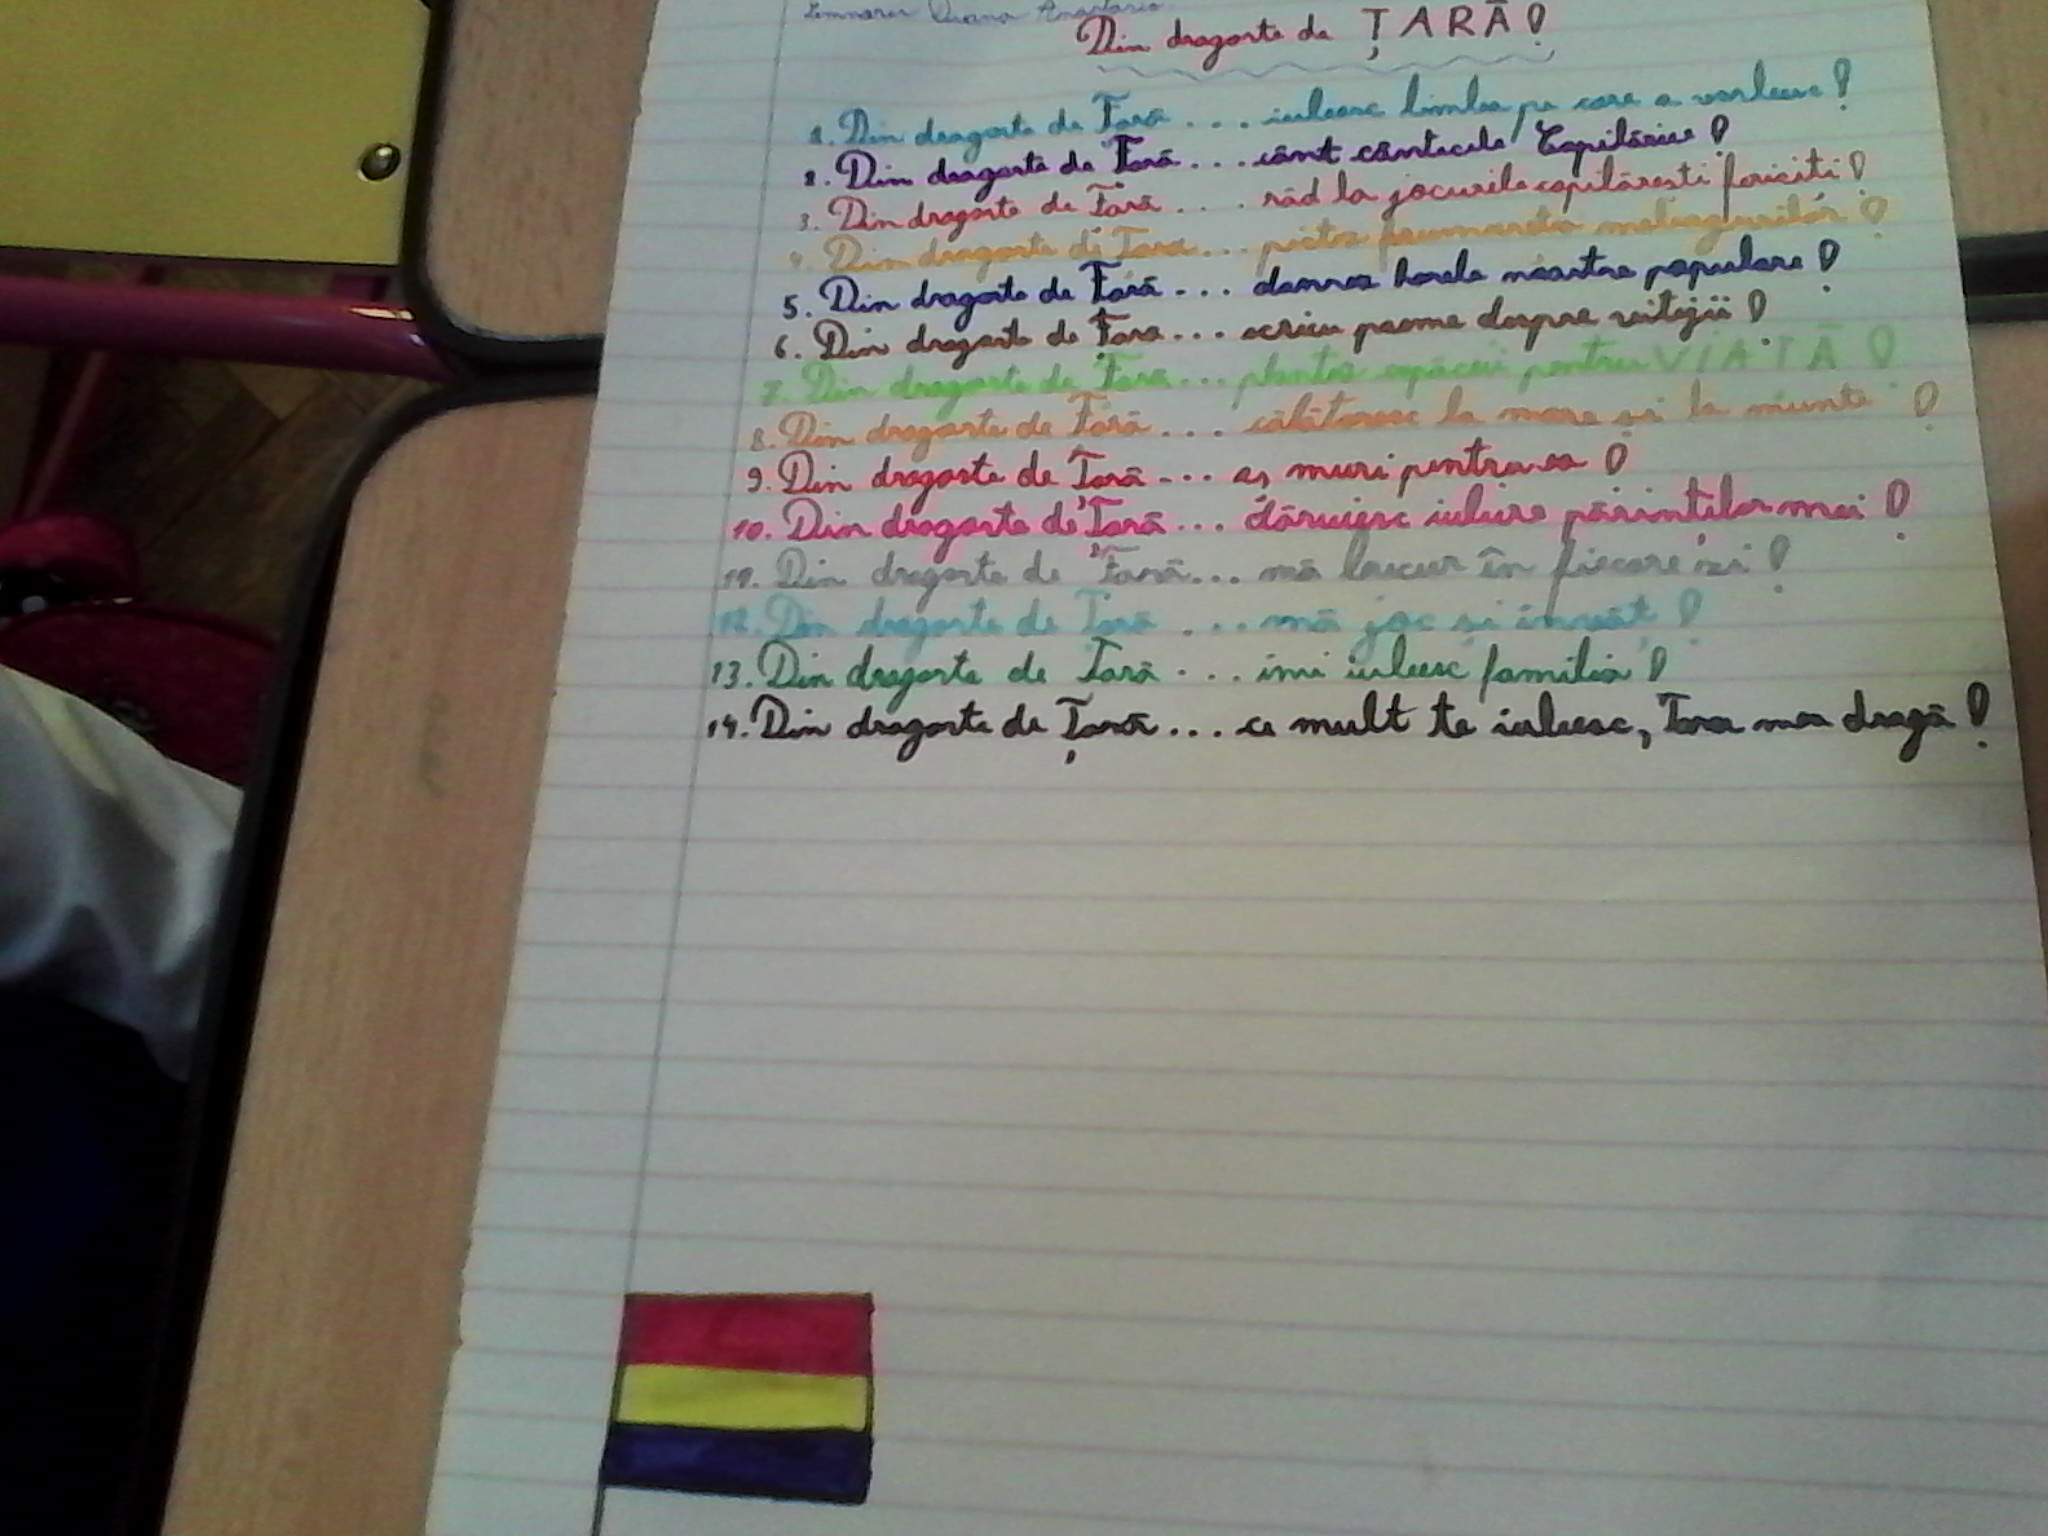 Diana Anastasia
Din dragoste de ȚARĂ!
1. Din dragoste de Țară ... iubesc limba pe care o vorbesc!
2. Din dragoste de Țară ... cânt cântecele Copilăriei!
3. Din dragoste de Țară .... râd la jocurile copilărești fericiti!
4. Din dragoste de Țară ... pictez frumusețea meleagurilor!
5. Din dragoste de Țară ... dansez horele noastre populare!
6. Din dragoste de Țara ... scriu poeme despre vitejii!
7. Din dragoste de Țară ... plantez copăceii pentru VIAȚĂ!
8. Din dragoste de Țară ... călătoresc la mare și la munte!
9. Din dragoste de Țară ... aș muri pentru ea!
10. Din dragoste de Țară ... dăruiesc iubire părinților mei!
11. Din dragoste de Țară... mă bucur în fiecare zi!
12. Din dragoste de Țară ... mă joc și învăț!
13. Din dragoste de Țară ... imi iubesc familia!
14. Din dragoste de Țară ... ce mult te iubesc, Țara mea dragă!